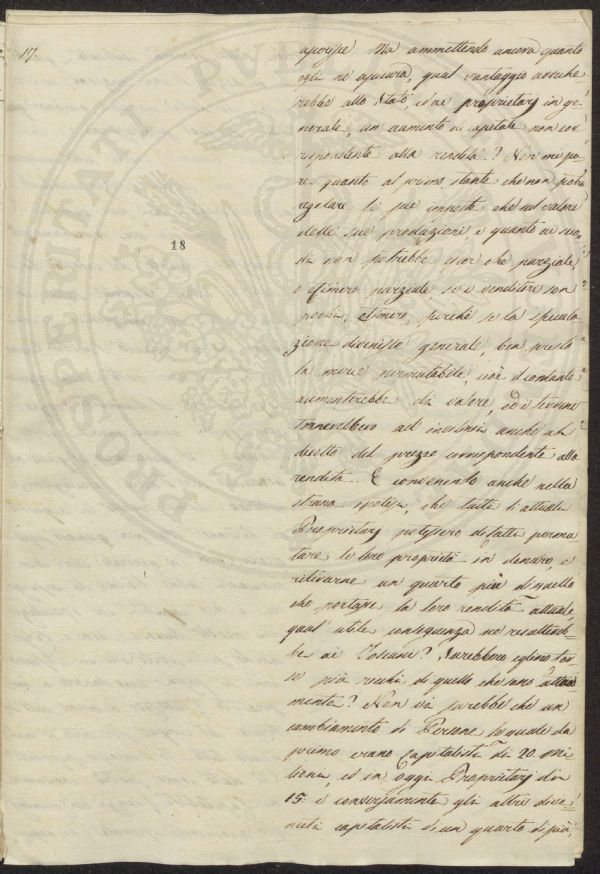 17.
18
aporsse Ma ammettendo ancora quanto
egli ne assicura, qual vantaggio arreche
rebbe allo Stato, ed ai proprietarj in ge
nerale, un aumento di capitale non cor
rispondente alla rendita? Non mi pa
re quanto al primo, stante che non potrà
regolare le sue imposte che sul valore
delle sue produzioni, e quanto ai secon
di non potrebbe esser che parziale,
o efimero parziale, se i venditori son
pochi, efimero, perchè se la specula
zione divenisse generale, ben presto
la merce permutabile, cioè il contante
aumenterebbe di valore, ed i terreni
tornerebbero ad inciliarsi anche al
disotto del prezzo corrispondente alla
rendita. E convenendo anche nella
strana ipotesi, che tutti li attuali
Proprietarj potessero difatti permu
tare le loro proprietà in denaro, e
ritirarne un quarto più di quello
che portasse la loro rendita attuale
qual' utile conseguenza ne risulterà
be ai Toscani? Sarebbero eglino for
se più ricchi di quello che sono attual
mente? Non vi sarebbe che un
cambiamento di Persone le quali da
primo erano Capitalisti di 20. Mi
lioni, ed in Oggi Proprietarj di
15. e conversamente gli altri dive
nuti capitalisti di un quarto di più,